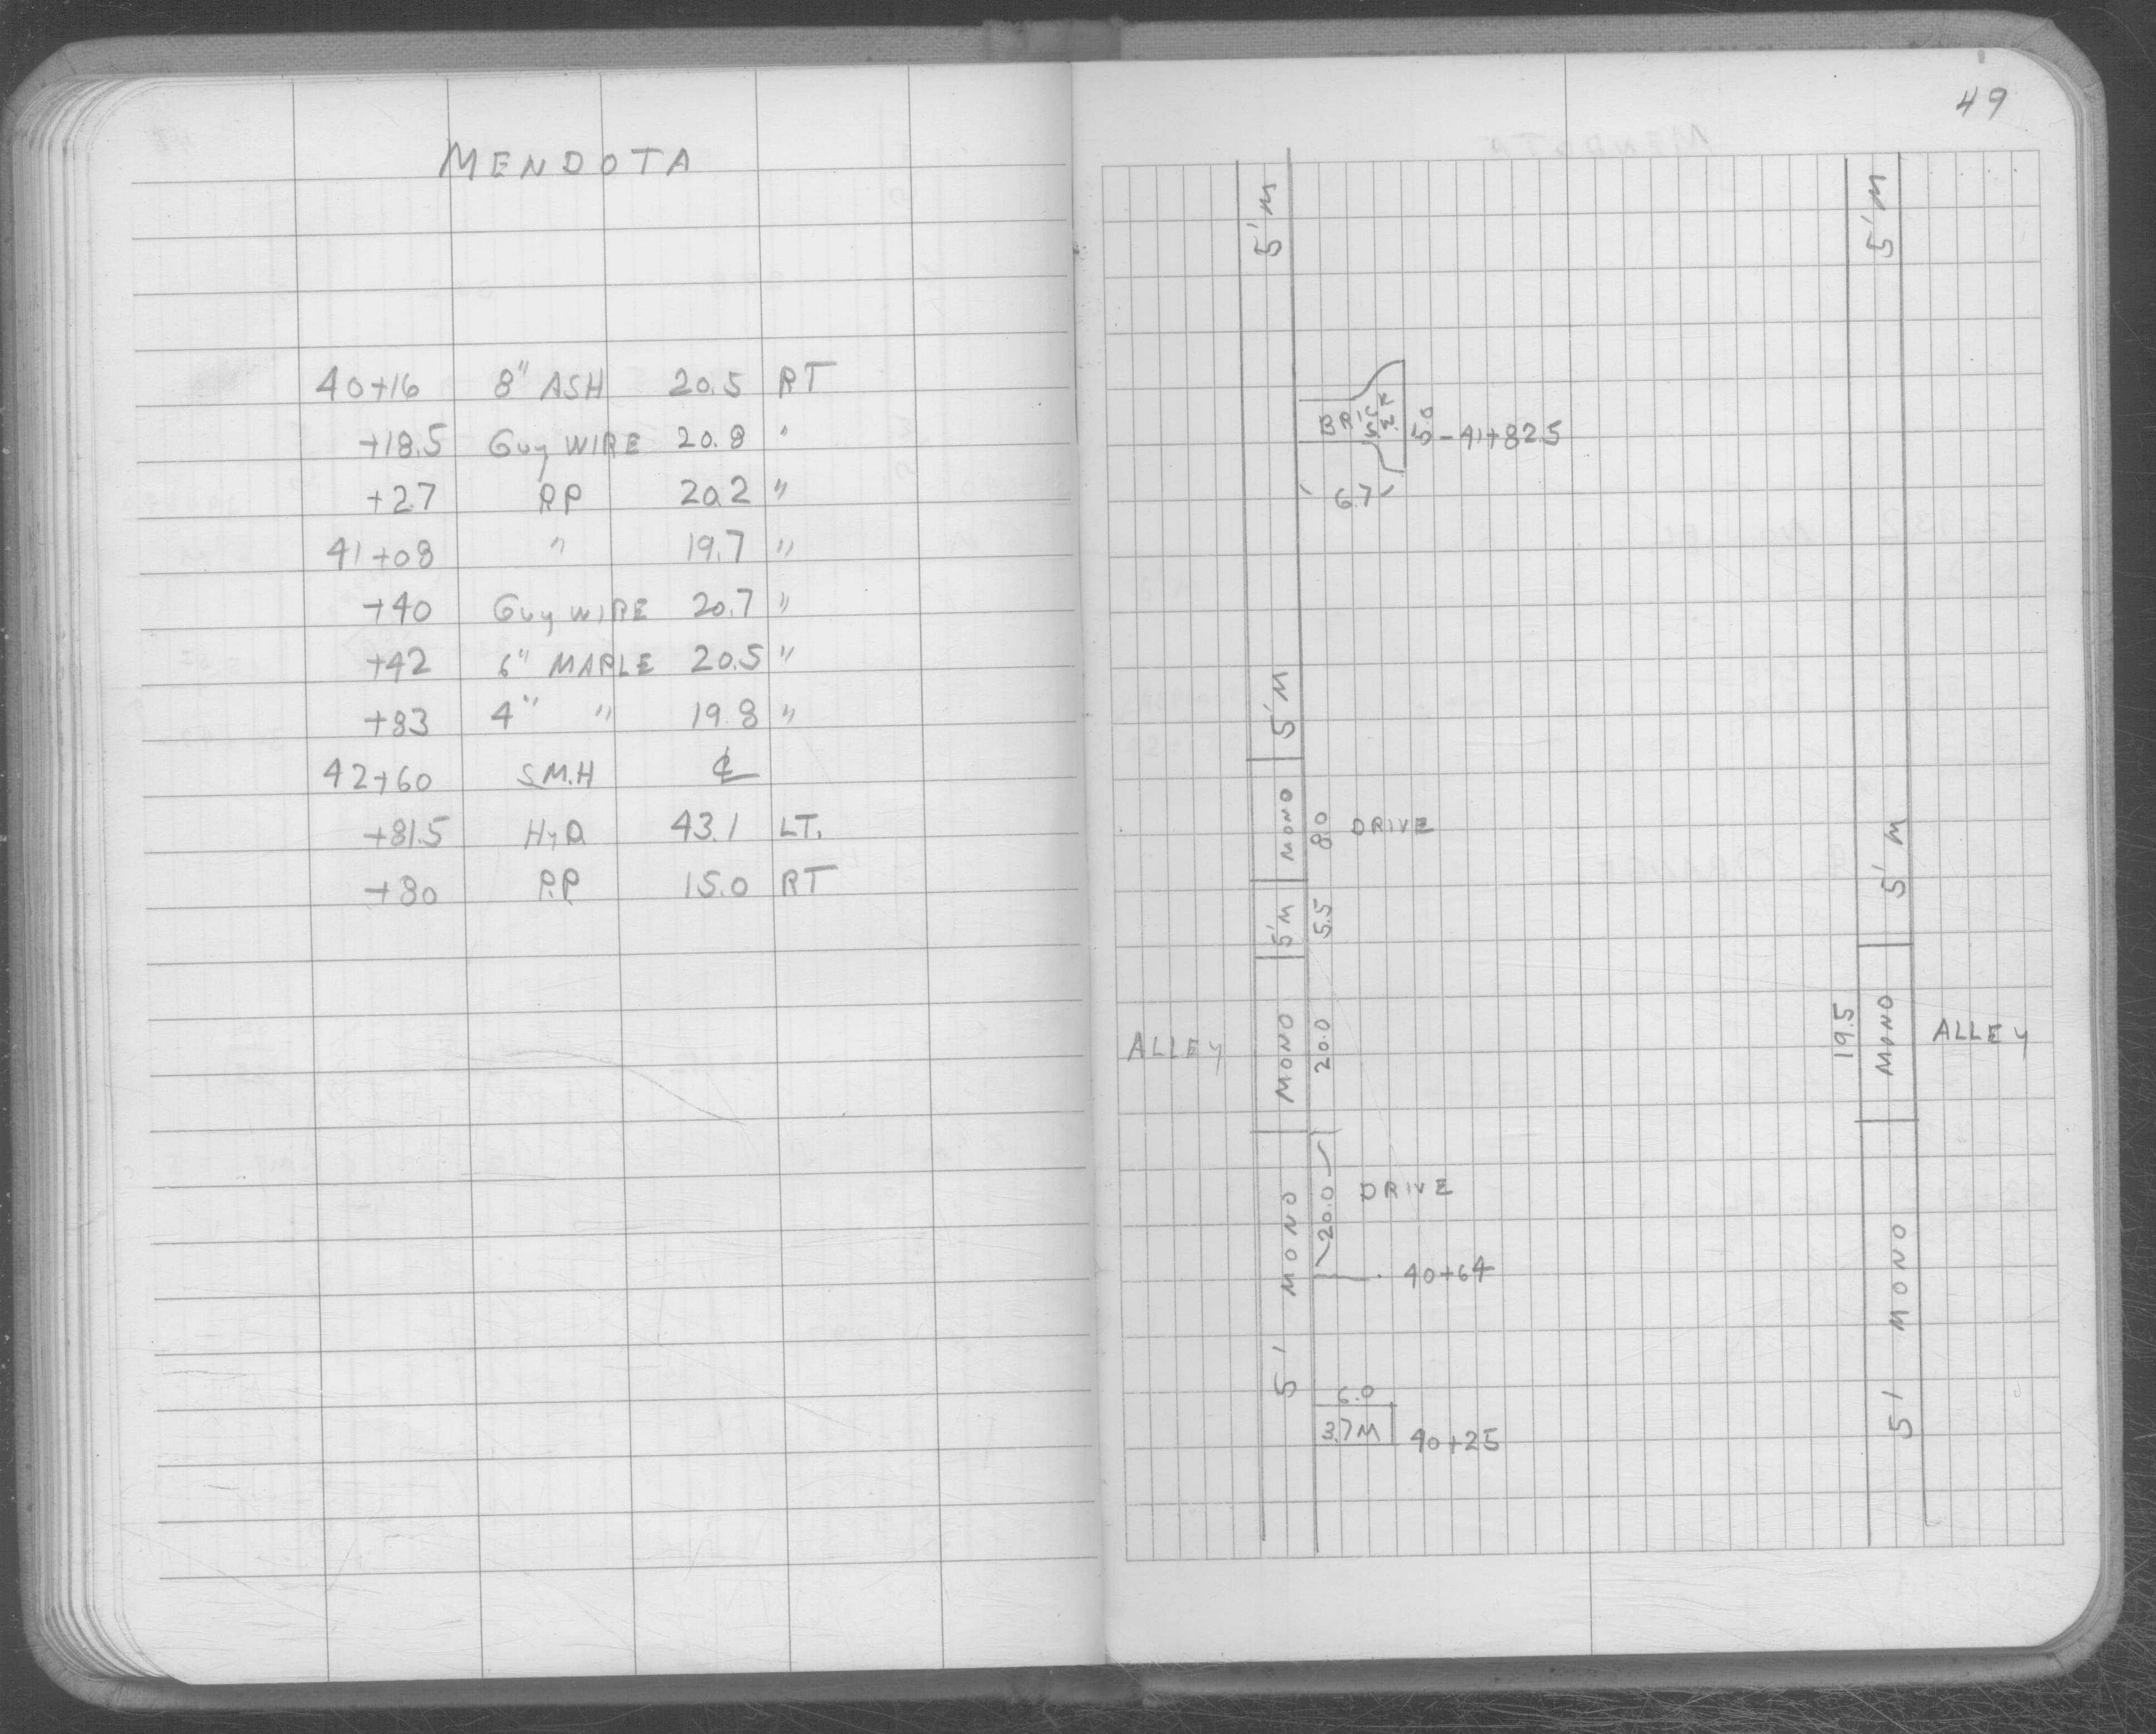 MENDOTA
40+16 8" ASH 20.5 RT
+18.5 Guy WIRE 20.8 "
+27 P.P 20.2 "
41+08 " 19.7 "
+40 Guy WIRE 20.7 "
+42 6" MAPLE 20.5 "
+83 4" " 19.8 "
42+60 S.M.H ℄
+81.5 HyD 43.1 LT.
+80 P.P 15.0 RT
49
5'M 5'M
BRICK 5.0 - 41+82.5
6.7
5'M
MONO 8.0 DRIVE
5'M
5'M 5.5
ALLEY MONO 20.0 19.5 MONO ALLEY
20.0 DRIVE
5' MONO 5' MONO
40+64
6.0
3.7M 40+25